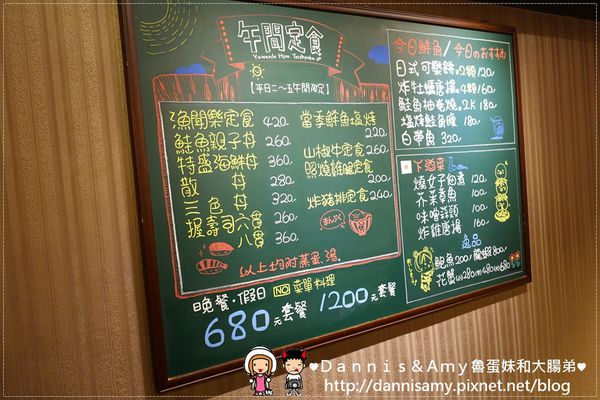 午間定食
【平日二~五午間限定】
漁聞樂定食 420.
鮭魚親子丼 260
特盛海鮮丼 360.
散 丼 280.
三色丼 320.
握壽司六貫 260.
八貫 360.
當季鮮魚塩燒 220.
山椒牛定食 260.
照燒雞腿定食 200.
炸豬排定食 240.
以上均附蒸蛋.湯.
晚餐.假日 NO 菜單料理
680元套餐 1200元套餐
今日鮮魚/今日のおすすめ
日式可樂餅.2顆 120.
炸牡蠣唐揚.4顆 160.
鮭魚柚庵燒.2K 180.
塩烤鮭魚腹 180.
白帶魚 320.
下酒菜
燒女子佃煮 120
芥菜章魚 100.
味噌蒜頭 100.
炸雞唐揚 160.
逸品
鮑魚 200/ 龍蝦 800/
花蟹 (S) 280 (M) 480 (L) 680
♥Dannis&Amy魯蛋妹和大腸弟♥
http://dannisamy.pixnet.net/blog